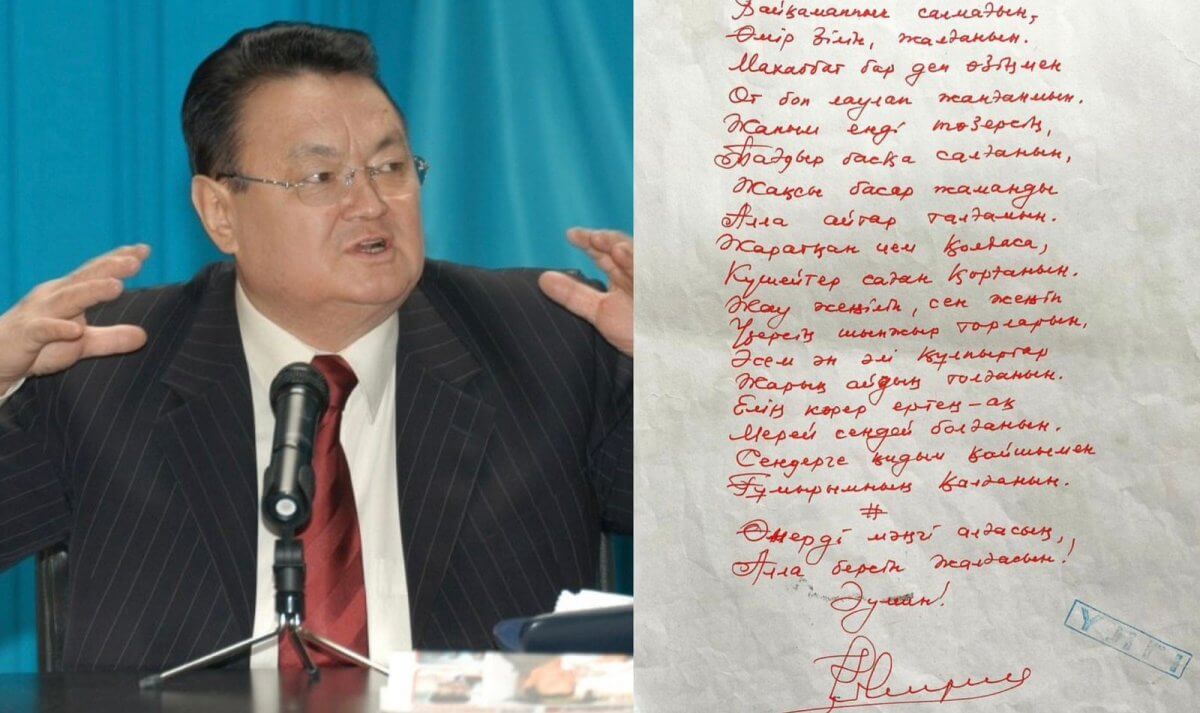 Байқамаппын салмадын,
Өмір зілін, жалғанын.
Махаббат бар деп өзіңмен
От боп лаулап жанғанмын.
Жаным енді төзерсің,
Тағдыр басқа салғанын,
Жақсы басар жаманды
Алла айтар талғамын.
Жаратқан ием қолдаса,
Күшейтер саған қорғанын.
Жау жеңіліп, сен жеңіп
Үзерсің шынжыр торларын,
Әсем ән әлі құлпыртар
Жарық айдың толғанын.
Елің көрер ертең-ақ
Мерей сендей болғанын.
Сендерге қидым қайшымен
Ғұмырымның қалғанын.
#
Өнерді мәңгі алғасың,,
Алла берсін жалғасын.
Әумин!